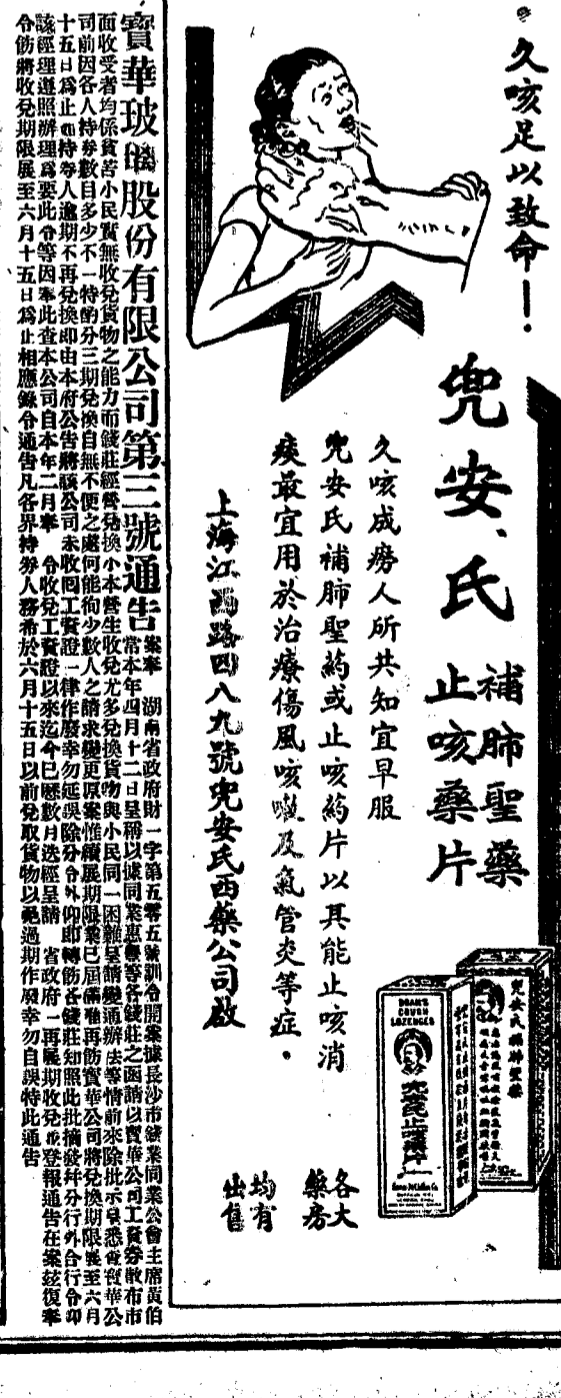 久咳足以致命！
兜安氏
補肺聖藥
止咳藥片
久咳成癆人所共知宜早服
兜安氏補肺聖葯或止咳葯片以其能止咳消
痰最宜用於治療傷風咳嗽及氣管炎等症．
上海江西路四八九號兜安氏西藥公司啟
各大
藥房
均有
出售
DOAN'S
COUGH
LOZENGES
兜安氏止咳藥片
兜安氏補肺聖藥
寶華玻璃股份有限公司第三號通告
案奉　湖南省政府財一字第五零五號訓令開案據長沙市錢業同業公會主席黃伯
當本年四月十二日呈稱以據同業惠
等各錢莊之函請以寶華公司工資券散布市
面收受者均係貧苦小民實無收兌貨物之能力而錢莊經營兌換小本營生收兌尤多兌換貨物與小民同一困難呈請變通辦法等情前來除批示呈悉查寶華公
司前因各人持券數目多少不一特酌分三期兌換自無不便之處何能徇少數人之請求變更原案惟續展期限業已屆滿
再飭寶華公司將兌換期限展至六月
十五日爲止如持券人逾期不再兌換即由本府公告將該公司未收回工資證一律作廢幸勿延誤除分令外仰即轉飭各錢莊知照此批摘發幷分行外合行令仰
該經理遵照辦理爲要此令等因奉此查本公司自本年二月奉　令收兌工資證以來迄今已歷數月迭經呈請　省政府一再展期收兌並登報通告在案茲復奉
令飭將收兌期限展至六月十五日爲止相應錄令通告凡各界持券人務希於六月十五日以前兌取貨物以免過期作廢幸勿自誤特此通告